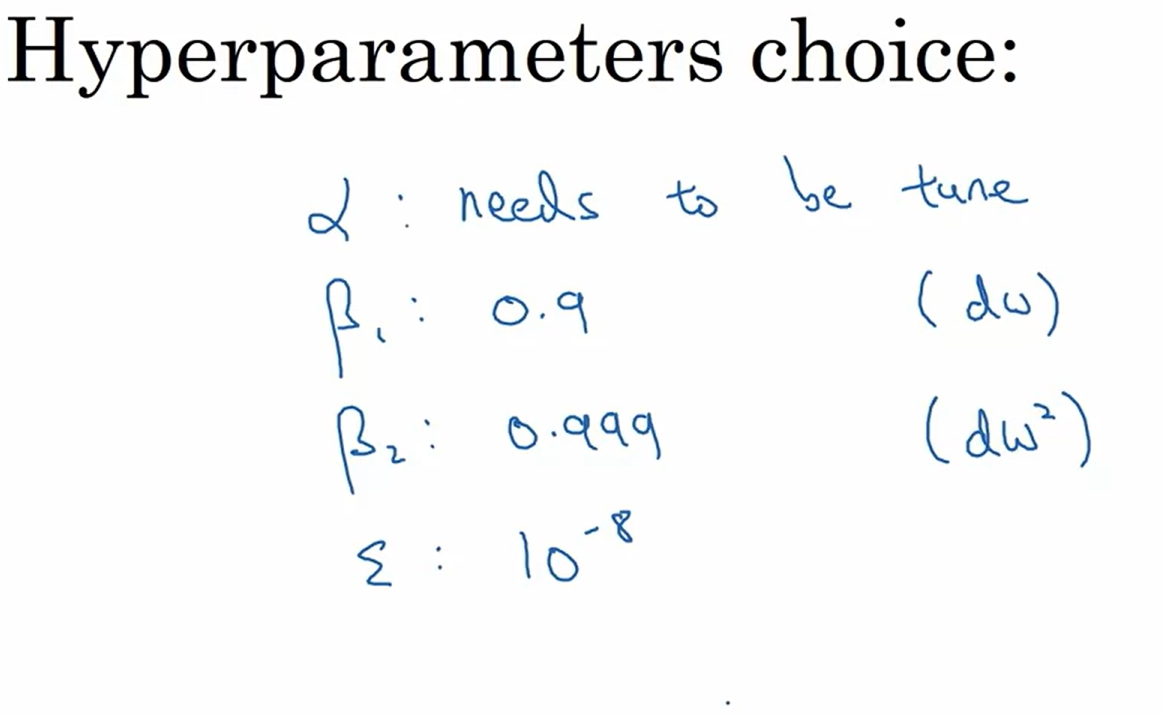 Hyperparameters choice:
α : needs to be tune
β₁ : 0.9 (dw)
β₂ : 0.999 (dw²)
ε : 10⁻⁸